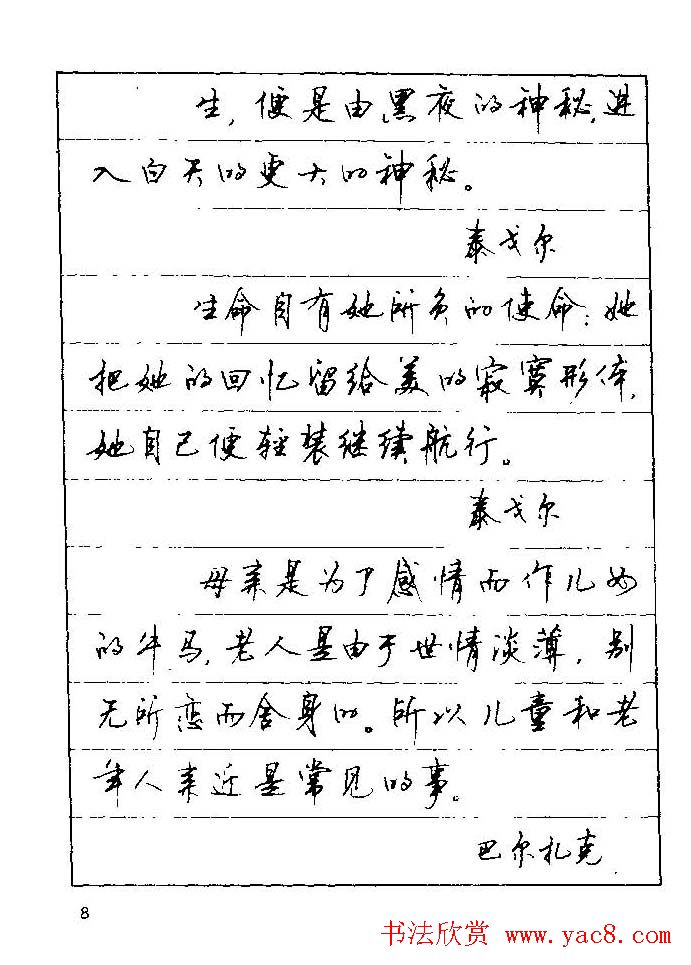 生，便是由黑夜的神秘，进
入白天的更大的神秘。
泰戈尔
生命自有她所负的使命：她
把她的回忆留给美的寂寞形体，
她自己便轻装继续航行。
泰戈尔
母亲是为了感情而作儿女
的牛马，老人是由于世情淡薄，别
无所恋而舍身的。所以儿童和老
年人亲近是常见的事。
巴尔扎克
8
书法欣赏 www.yac8.com